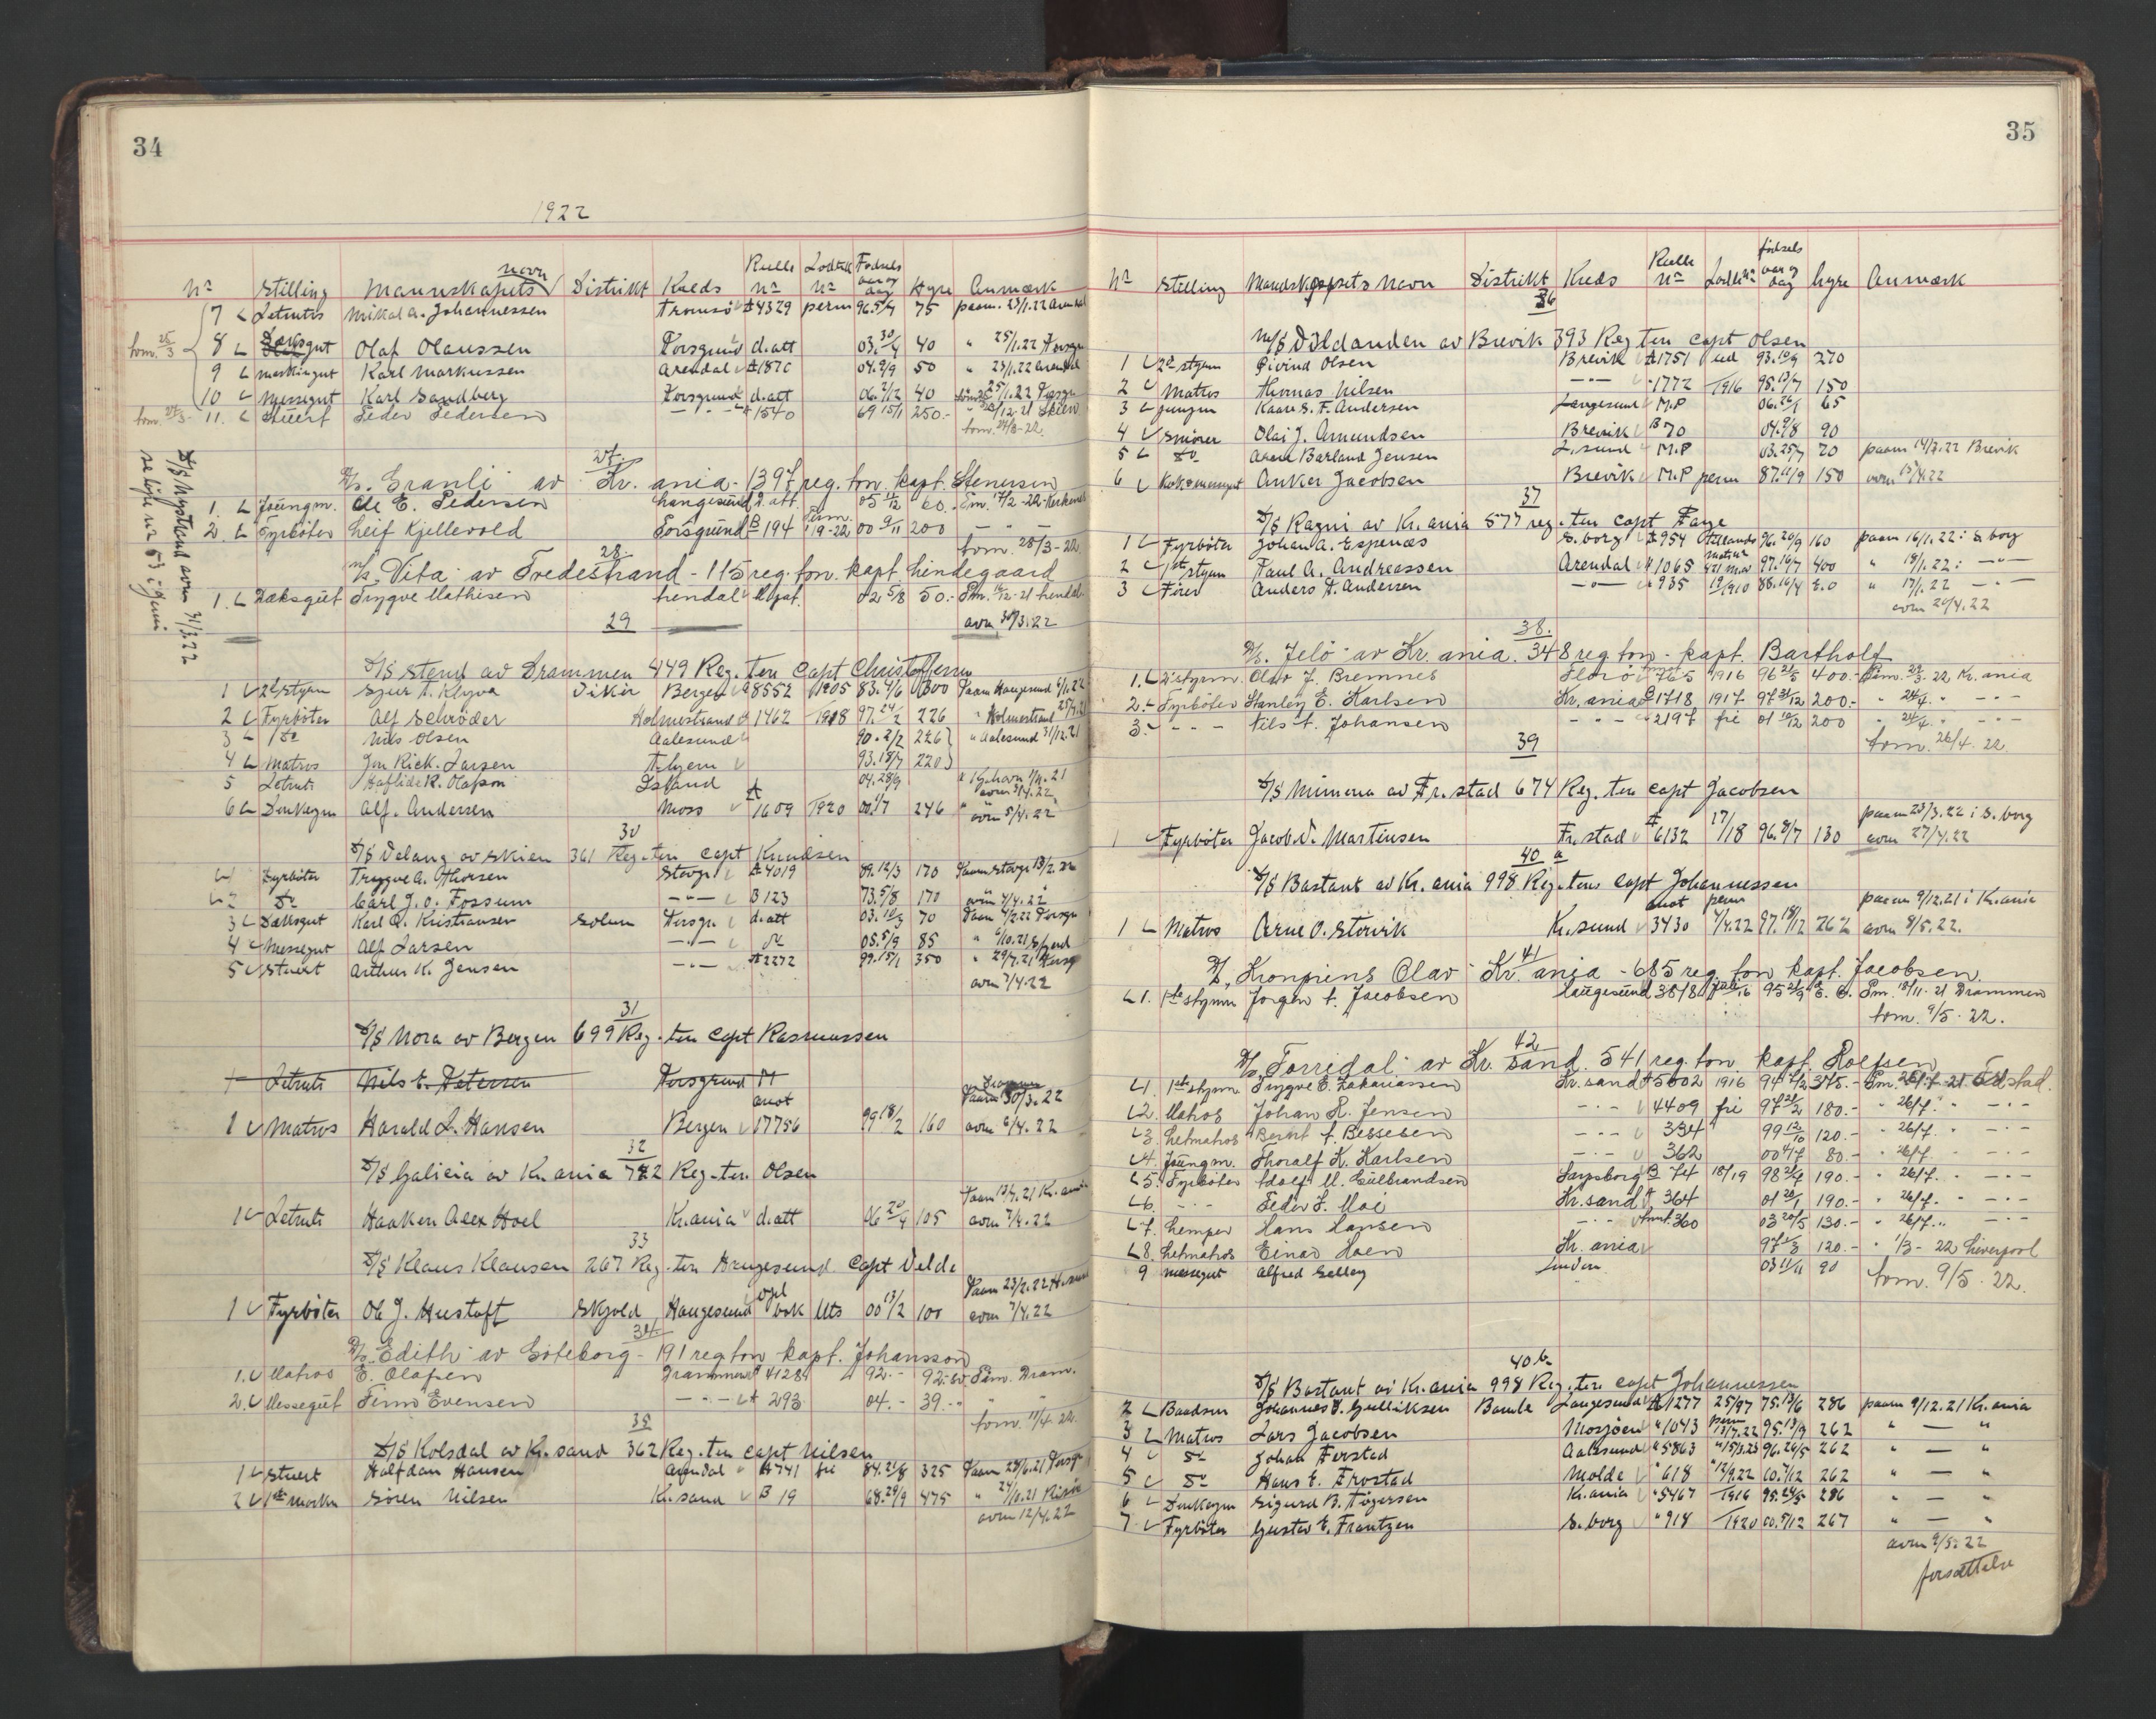 34
1922
No Stilling Mannskapets navn Distrikt Kreds Rulle No Lodtr. No Fødsels aar og dag Hyre Anmærk
7 Letmtrs Mikal A. Johannessen Tromsø A 4329 perm 96. 5/7 75 paam. 23/1.22 Arendal
tom. 25/3 8 Dæksgut Olaf Olaussen Porsgrund d.att 03. 30/4 40 " 25/1.22 Porsgr
9 Maskingut Karl Markussen Arendal A 1870 04. 9/9 50 " 23/1.22 Arendal
10 Messegut Karl Sandberg Porsgrund d.att 06. 2/12 40 25/1.22 Porsgr
11. Stuert Peder Pedersen — " — 1540 69 15/1 250.- /12-21 Skien
tom. 24/3-22.
D/S Nystrand avm 31/3.22
se løpe nr 53 i Juni
27.
D/S Granli av Kr.ania - 1397 reg. ton. kapt. Stenersen
1. Jüngm. Ole E. Pedersen Langesund d. att. 05 11/12 60.- Pm. 17/2-22
2. Fyrbøter Leif Kjellevold Porsgrund B 194 Perm. 19-22 00 9/11 200 — " —
tom. 28/3-22.
28.
M/S Vita av Tvedestrand - 115 reg. ton. kapt. Lindegaard
1. Dæksgut Trygve Mathisen Arendal 02 5/8 50.- Pm. /12-21 Arendal
avm 30/3.22
29
D/S Stend av Drammen 449 Reg. ten Capt Christoffersen
1 2d styrm Sjur A. Klyva Vikør Bergen A 8552 1905 83. 4/6 300 Paam Haugesund 4/1.22
2 Fyrbøter Alf Schrøder Holmestrand A 1462 1918 97. 24/2 226 " Holmestrand
3 do Nils Olsen Aalesund 90. 2/2 226 " Aalesund 31/12.21
4 Matros Jon Rick. Larsen 93. 18/7 220
5 Letmtr Haflide R. Olafson Island 04. 28/9 " Kjøhavn 21
avm 3/4.22
6 Donkeym Alf. Andersen Moss A 1609 1920 00. 1/7 246 " avm 5/4.22
30
D/S Velang av Skien 361 Reg. ten Capt Knudsen
Fyrbøter Trygve A. Thorsen Stavgr A 4019 89. 12/3 170 Paam Stavgr 13/2.22
2 Do Carl J. O. Fossum — " — B 123 73. 5/8 170 avm 4/4.22
3 Dæksgut Karl Q. Kristiansen Solum Porsgr. d.att 03. 10/3 70 Paam 4/2.22 Porsgr
4 Messegut Alf Larsen — " — do 05. 5/9 85 " 6/10.21
5 Stuert Arthur K. Jensen — " — A 2272 99. 15/1 350 " 29/7.21 Porsgr
avm 7/4.22
31
D/S Nora av Bergen 699 Reg. ten Capt Rasmussen
Letmtr Nils E. Petersen Porsgrund M
Drammen
1 Matros Harald L. Hansen Bergen anot 17756 99 18/2 160 Paam 30/3.22 avm 6/4.22
32
D/S Galicia av Kr.ania 782 Reg. ten. Olsen
1 Letmtr Haaken Alex Hoel Kr.ania d.att 06 20/9 105 Paam 13/7.21 Kr.ania avm 7/4.22
33
D/S Klaus Klausen 267 Reg. ten Haugesund Capt Velde
1 Fyrbøter Ole J. Hustoft Skjold Haugesund opl bok Uts 00 13/2 100 Paam 23/2.22 H.sund avm 7/4.22
34.
D/S Edith av Göteborg - 191 reg ton kapt. Johansson
1. Matros E. Olafsen Drammen A 4128 92.- 92.50 Pm. Dram.
2. Messegut Finn Evensen — " — A 293 04.- 39.- "
tom. 11/4-22.
35
D/S Kolsdal av Kr.sand 362 Reg. ten Capt Nilsen
1 Stuert Halfdan Hansen Arendal A 741 fri 84. 21/8 325 Paam 28/6.21 Porsgr
2 1ste Mask Søren Nilsen Kr.sand B 19 68. 29/9 475 " 24/10.21 Risør
avm 12/4.22
35
No Stilling Mandskapets navn Distrikt Kreds Rulle No Lodtr No fødsels aar og dag hyre Anmærk
36
M/S Vildanden av Brevik 393 Reg ten Capt Olsen
1 2d styrm Øivind Olsen Brevik A 1751 ud 93. 10/9 270
2 Matros Thomas Nilsen — " — 1772 1916 95. 13/7 150
3 Jungm Kaare S. F. Andersen Langesund M.P 06. 26/1 65
4 Smører Olai J. Amundsen Brevik B 70 04. 9/8 90
5 Do Aren Barland Jensen L.sund M.P 03. 25/7 70 paam 14/3.22 Brevik
6 Kok & messegut Anker Jacobsen Brevik M.P perm 87. 11/9 150 avm 15/4.22
37
D/S Ragni av Kr.ania 577 reg. ten Capt Faye
1 Fyrbøter Johan A. Espenæs S.borg A 954 Utlands 96. 20/9 160 paam 16/1.22 i S.borg
2 1ste styrm Paul A. Andreassen Arendal A 1065 97. 16/7 400 " 18/1.22 : — " —
3 Fører Anders A. Andersen — " — 935 19/1910 88. 16/4 E.O " 17/1.22 — " —
avm 20/4.22
38.
D/S Jelö av Kr.ania. 348 reg ton - kapt. Barthold
1. 2. styrm. Olav J. Bremnes Florø 765 1916 96 21/5 400.- Pm. 29/3-22 Kr.ania
2. Fyrbøter Stanley E. Karlsen Kr.ania B 1718 1917 97 31/12 200.- " 24/4 " — " —
3. — " — Nils A. Johansen — " — 2197 fri 01 10/12 200 " 24/4 — " —
tom. 26/4-22.
39
D/S Mimona av Fr.stad 674 Reg. ten Capt Jacobsen
paam 28/3.22 i S.borg
1 Fyrbøter Jacob N. Martinsen Fr.stad A 6132 17/18 96. 8/7 130 avm 27/4.22
40 a
D/S Bastant av Kr.ania 998 Reg. tens Capt Johannessen
paam 9/12.21 i Kr.ania
1 Matros Arne O. Storvik Kr.sund anot 3430 perm 4/4.22 97. 18/12 262 avm 8/5.22.
41
D/S Kronprins Olav Kr.ania - 685 reg. ton kapt. Jacobsen.
1. 1ste styrm Jørgen A. Jacobsen Haugesund 3818 /16 95 21/9 E.O. Pm. 18/11-21 Drammen
tom. 9/5-22.
42
D/S Torridal av Kr.sand. 541 reg. ton kapt. Roefsen
1. 1ste styrm Trygve E. Zakariassen Kr.sand A 5002 1916 94 17/2 375.- Pm. 26/7-21
2. Matros Johan R. Jensen — " — 4409 fri 97 21/2 180.- " 26/7. " — " —
3. Letmatros Bernt A. Bessesen — " — 334 99 12/10 120.- " 26/7. — " —
4. Jüngm. Thoralf K. Karlsen — " — 362 00 4/7 80.- " 26/7. — " —
5. Fyrbøter Adolf M. Gulbrandsen Sarpsborg B 74 18/19 98 21/4 190.- " 26/7. — " —
6. — " — Peder S. Moi Kr.sand A 364 01 20/1 190.- " 26/7. " — " —
7. Lemper Hans Hansen — " — Annt. 360 03 20/5 130.- " 26/7. " — " —
8. Letmatros Einar Hoen Kr.ania 97 1/3 120.- " 1/3-22 Liverpool
9 Messegut Alfred Selley London 03 11/11 90
tom. 9/5-22.
40 b.
D/S Bastant av Kr.ania 998 Reg. ten Capt Johannessen
2 Baadsm Johannes J. Gulliksen Bamble Langesund A 1277 25/97 75. 13/6 286 paam 9/12.21 Kr.ania
3 Matros Lars Jacobsen Mosjøen " 1043 perm 13/7.22 95. 13/9 262 " — "
4 Do Johan Forstad Aalesund " 5863 " 15/3.23 96. 26/5 262 " — "
5 Do Hans E. Frostad Molde " 618 " 12/9.22 00. 7/12 262 " — "
6 Donkeym Sigurd B. Tögersen Kr.ania " 5467 1916 95. 24/5 286 " — "
7 Fyrbøter Gustav E. Frantzen S.borg " 918 1920 00. 9/12 267 " — "
avm 9/5.22
forsættelse